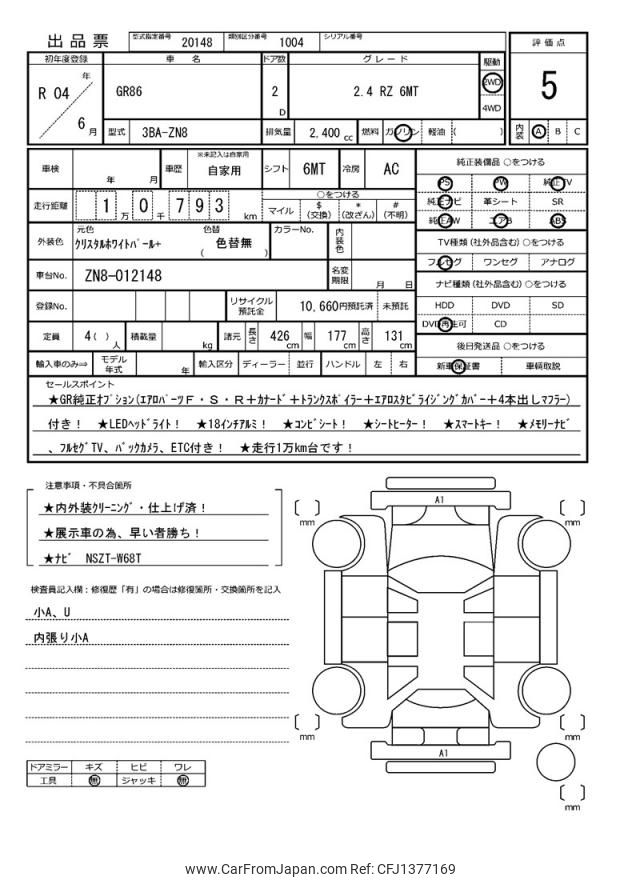 出品票
型式指定番号 20148 類別区分番号 1004 シリアル番号
評価点
5
内装 A B C
初年度登録 車名 ドア数 グレード 駆動
R 04 年 6 月
GR86
2 D
2.4 RZ 6MT
2WD
4WD
型式 3BA-ZN8 排気量 2,400 cc 燃料 ガソリン 軽油 ( )
車検 年 月 車歴 ※未記入は自家用 自家用 シフト 6MT 冷房 AC
走行距離 1 万 0 千 7 9 3 km
○をつける
マイル $(交換) *(改ざん) #(不明)
外装色 元色 クリスタルホワイトパール+ 色替 ( 色替無 ) カラーNo. 内装色
車台No. ZN8-012148 名変期限 月 日
登録No. リサイクル預託金 10,660円預託済 未預託
定員 4( )人 積載量 kg 諸元 長さ 426 cm 幅 177 cm 高さ 131 cm
輸入車のみ⇒ モデル年式 年 輸入区分 ディーラー 並行 ハンドル 左 右
純正装備品 ○をつける
PS PW 純正TV
純正ナビ 革シート SR
純正AW エアB ABS
TV種類(社外品含む)○をつける
フルセグ ワンセグ アナログ
ナビ種類(社外品含む)○をつける
HDD DVD SD
DVD再生可 CD
後日発送品 ○をつける
新車保証書 車輌取説
セールスポイント
★GR純正オプション(エアロパーツF・S・R+カナード+トランクスポイラー+エアロスタビライジングカバー+4本出しマフラー)
付き! ★LEDヘッドライト! ★18インチアルミ! ★コンビシート! ★シートヒーター! ★スマートキー! ★メモリーナビ
、フルセグTV、バックカメラ、ETC付き! ★走行1万km台です!
注意事項・不具合箇所
★内外装クリーニング・仕上げ済!
★展示車の為、早い者勝ち!
★ナビ NSZT-W68T
検査員記入欄:修復歴「有」の場合は修復箇所・交換箇所を記入
小A、U
内張り小A
ドアミラー キズ ヒビ ワレ
工具 無 ジャッキ 無
A1
mm
mm
mm
mm
A1
mm
www.CarFromJapan.com Ref: CFJ1377169